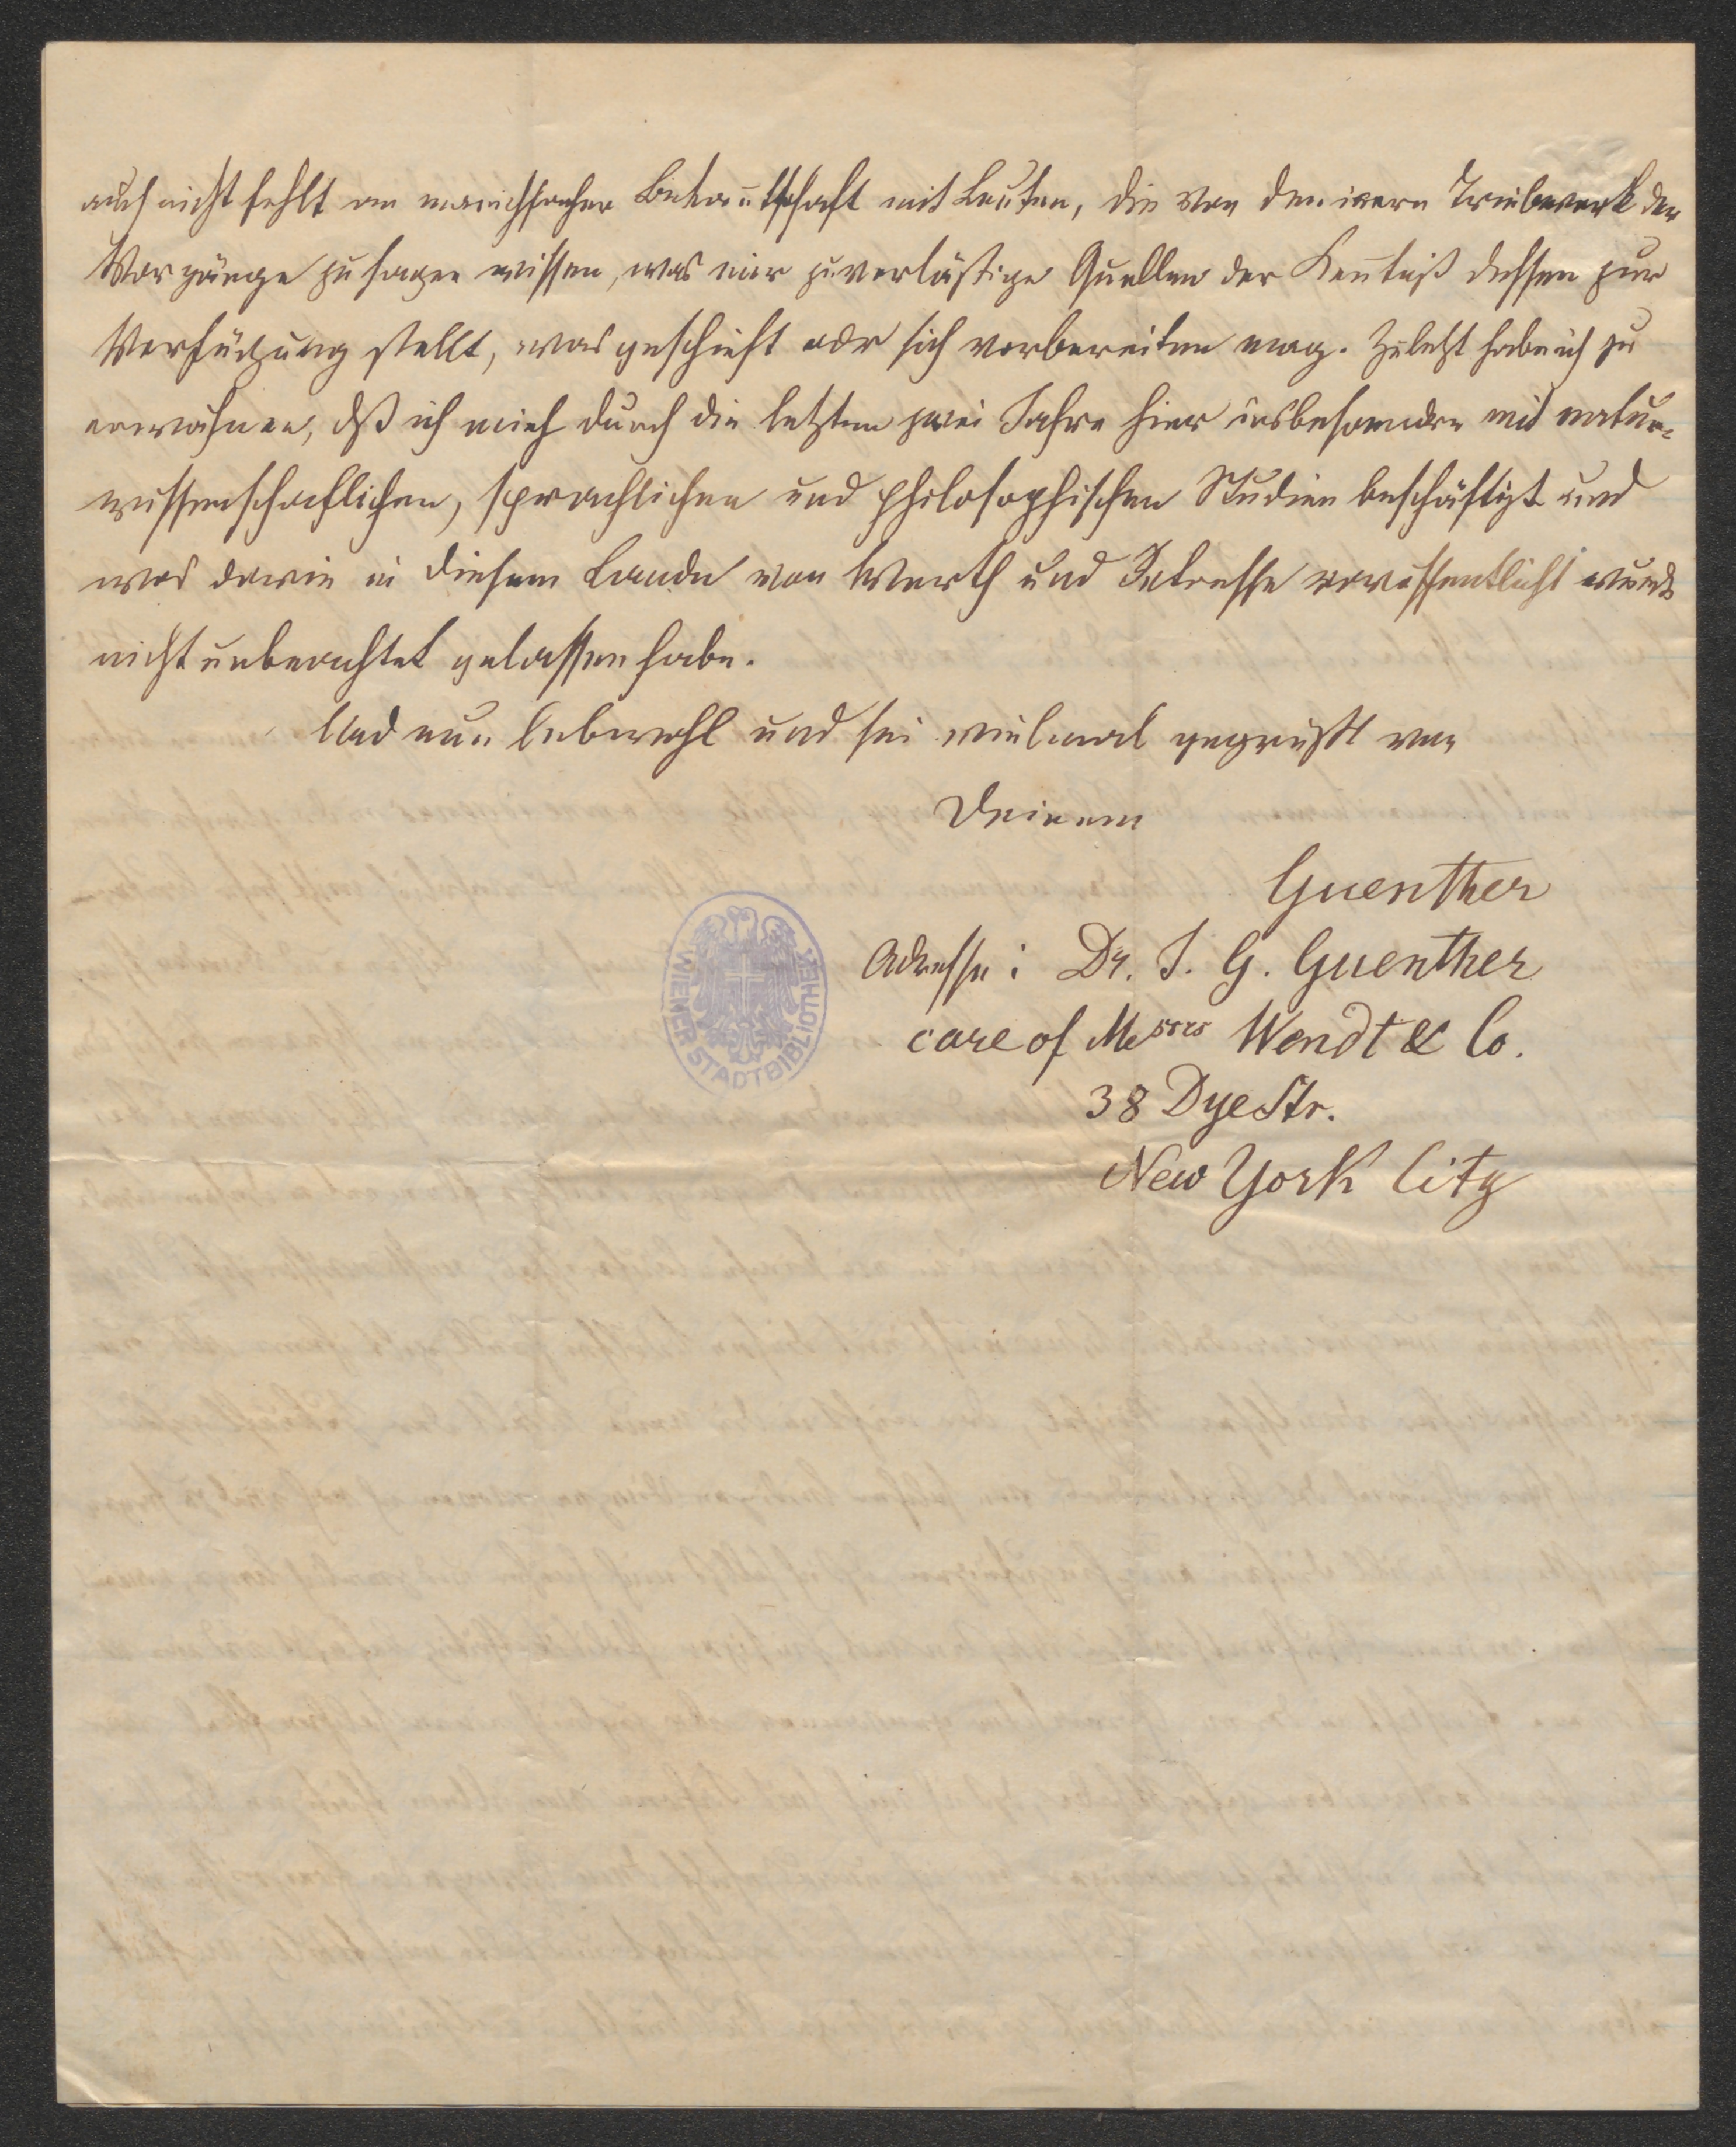 auch nicht fehlt an mannichfacher Bekan̄tschaft mit Leuten, die von dem innern Triebwerk der
Vorgänge zu sagen wissen, was mir zuverläßige Quellen der Ken̄tniß dessen zur
Verfügung stellt, was geschieht oder sich vorbereiten mag. Zuletzt habe ich zu
erwähnen, dß ich mich durch die letzten zwei Jahre hier insbesondere mit natur-
wissenschaftlichen, sprachlichen und philosophischen Studien beschäftigt und
was darin in diesem Lande von Werth und Interesse veröffentlicht wurde
nicht unbeachtet gelassen habe.
Und nun lebewohl und sei vielmal gegrüßt von
Deinem
Guenther
Adresse: Dr. J. G. Guenther
care of Messrs Wendt & Co.
38 Dye Str.
New York City
WIENER STADTBIBLIOTHEK